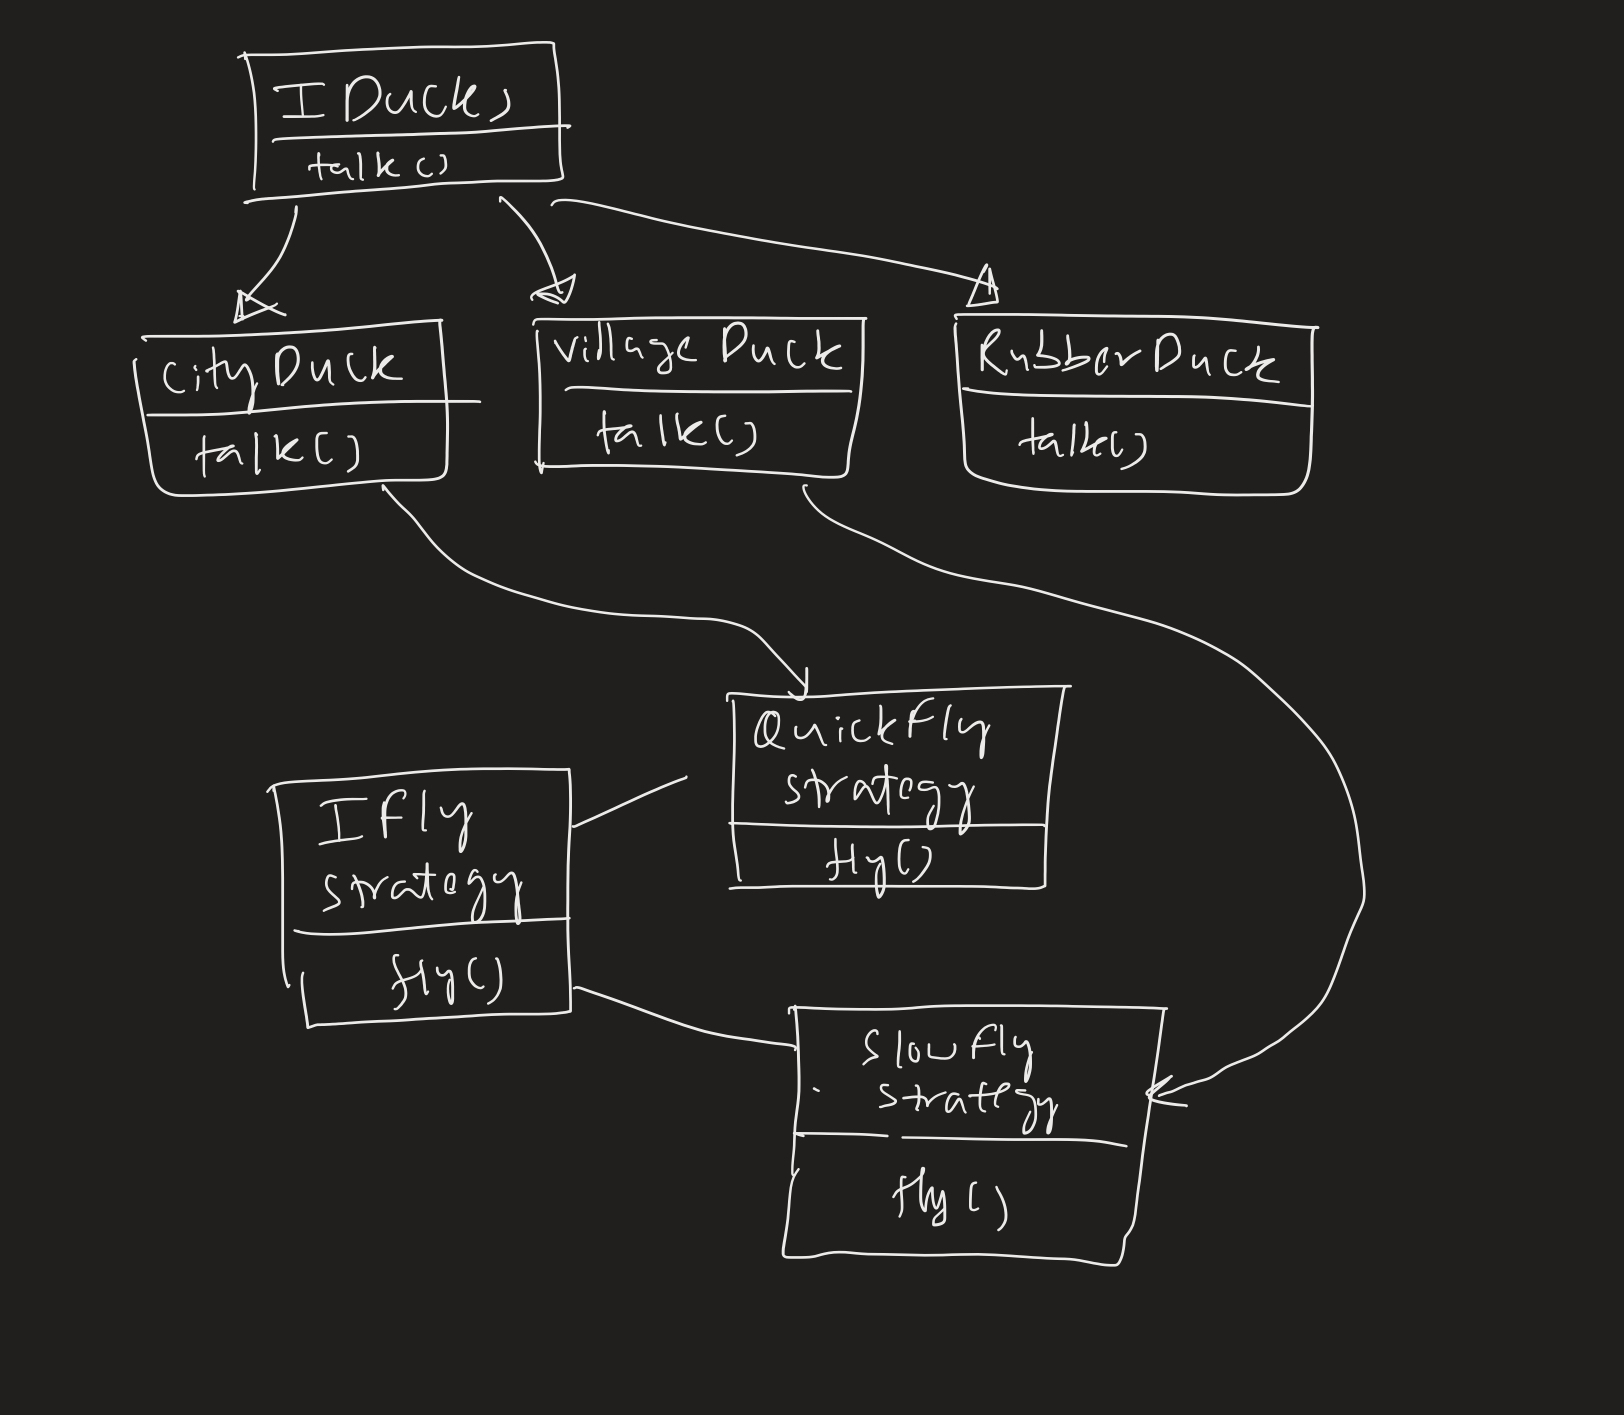 IDuck
talk()
City Duck
talk()
Village Duck
talk()
Rubber Duck
talk()
QuickFly
strategy
fly()
IFly
strategy
fly()
SlowFly
strategy
fly()